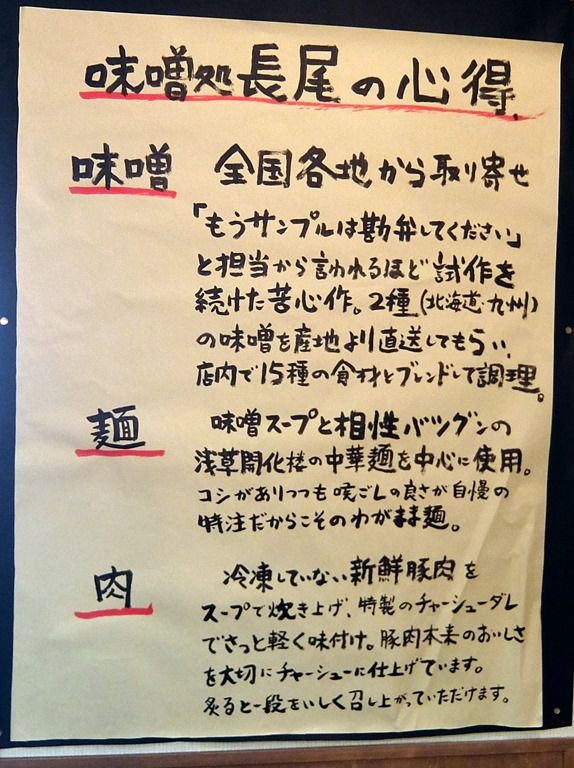 味噌処 長尾の心得
味噌 全国各地から取り寄せ
「もうサンプルは勘弁してください」
と担当から言われるほど試作を
続けた苦心作。2種(北海道・九州)
の味噌を産地より直送してもらい、
店内で15種の食材とブレンドして調理。
麺 味噌スープと相性バツグンの
浅草開化楼の中華麺を中心に使用。
コシがありつつも喉ごしの良さが自慢の
特注だからこそのわがまま麺。
肉 冷凍していない新鮮豚肉を
スープで炊き上げ、特製のチャーシューダレ
でさっと軽く味付け。豚肉本来のおいしさ
を大切にチャーシューに仕上げています。
炙ると一段をいしく召し上がっていただけます。